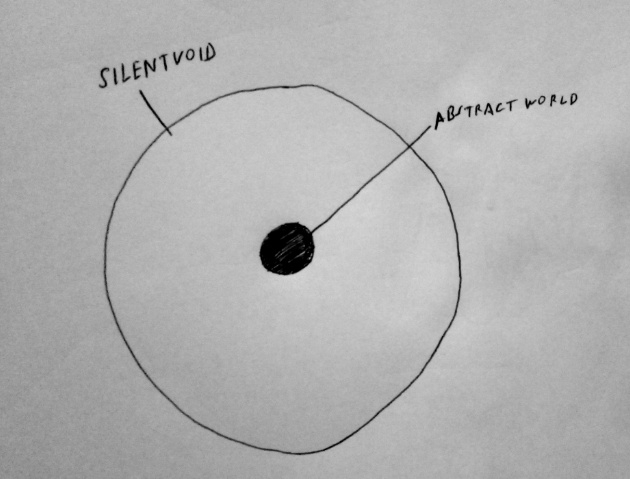 SILENTVOID
ABSTRACT WORLD